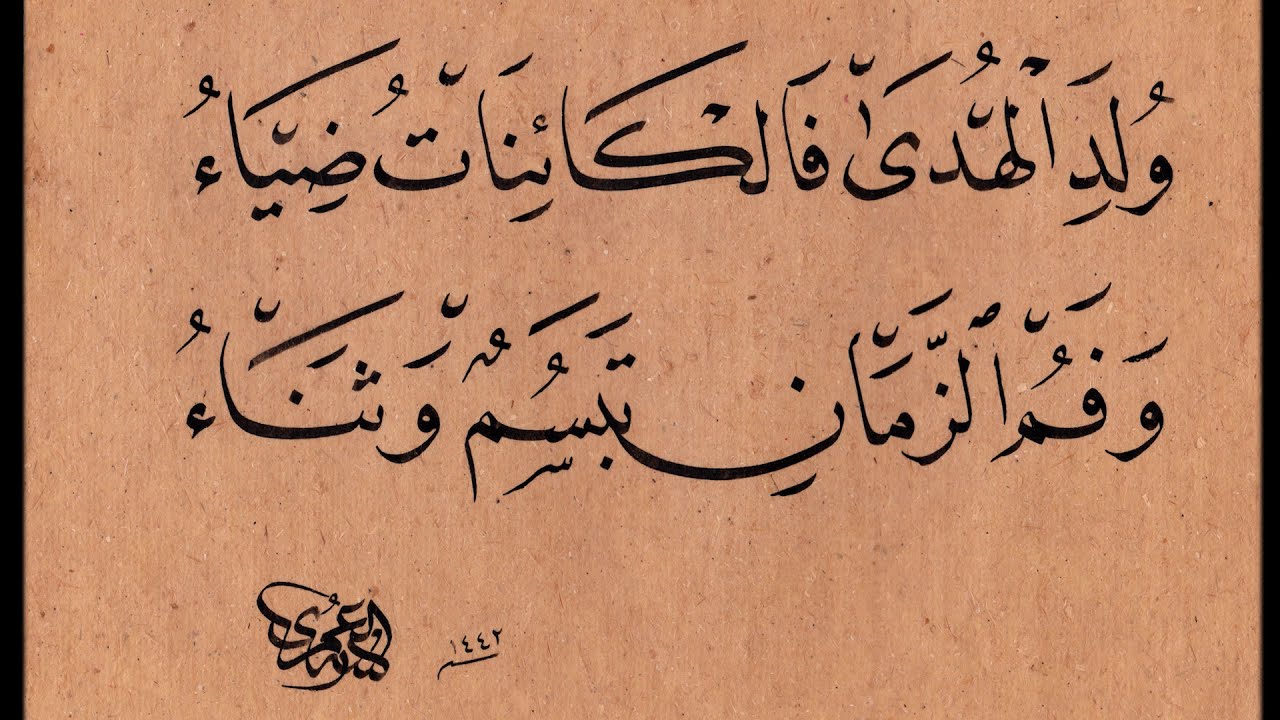 وُلِدَ ٱلْهُدَىٰ فَالْكَائِنَاتُ ضِيَاءُ
وَفَمُ ٱلزَّمَانِ تَبَسُّمٌ وَثَنَاءُ
١٤٤٢